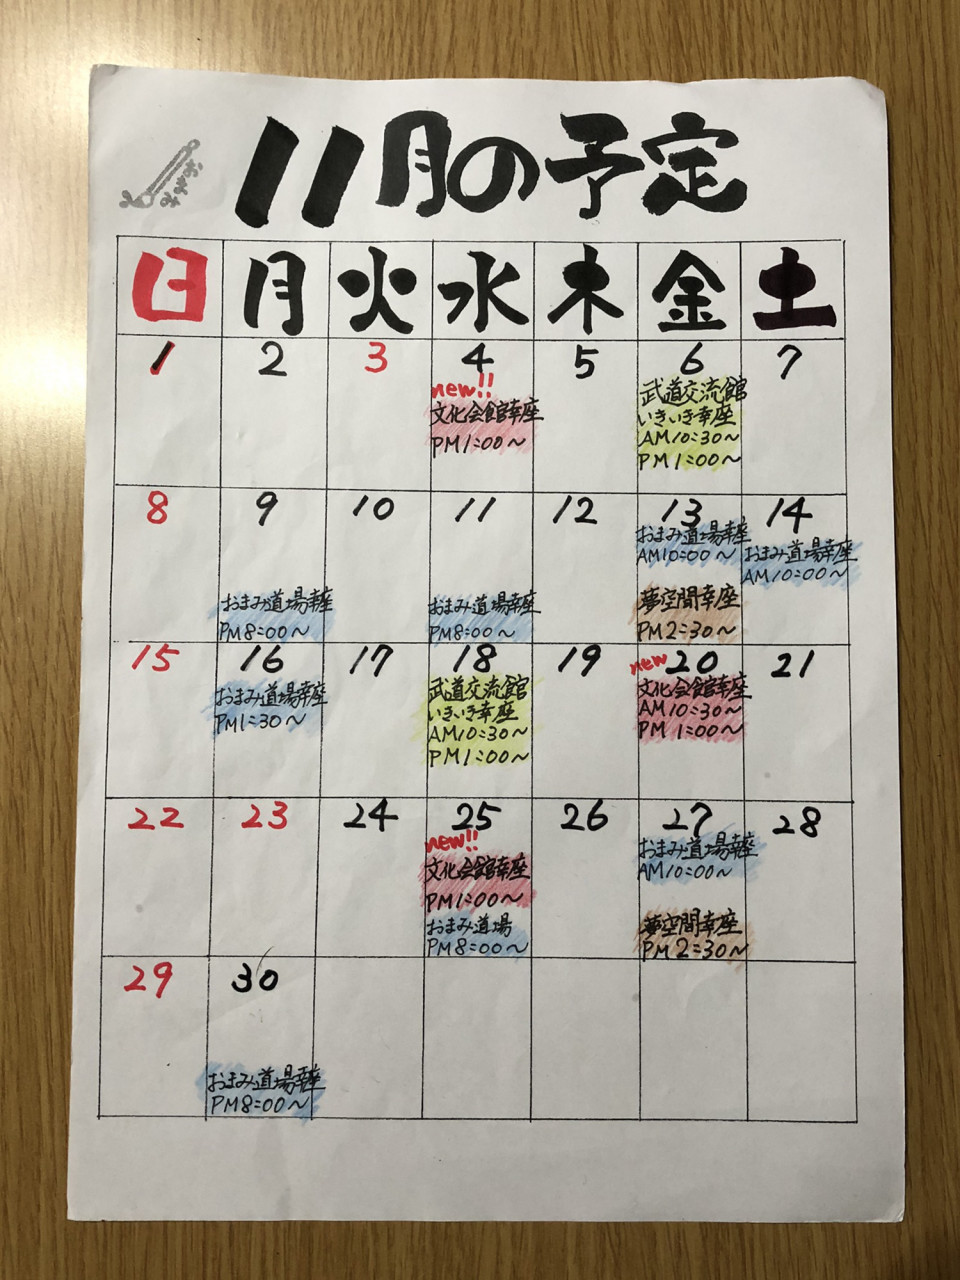 11月の予定
日 月 火 水 木 金 土
1 2 3 4 5 6 7
new!!
文化会館幸座
PM1:00～
武道交流館
いきいき幸座
AM10:30～
PM1:00～
8 9 10 11 12 13 14
おまみ道場幸座
PM8:00～
おまみ道場幸座
PM8:00～
おまみ道場幸座
AM10:00～
夢空間幸座
PM2:30～
おまみ道場幸座
AM10:00～
15 16 17 18 19 20 21
おまみ道場幸座
PM1:30～
武道交流館
いきいき幸座
AM10:30～
PM1:00～
new
文化会館幸座
AM10:30～
PM1:00～
22 23 24 25 26 27 28
new!!
文化会館幸座
PM1:00～
おまみ道場
PM8:00～
おまみ道場幸座
AM10:00～
夢空間幸座
PM2:30～
29 30
おまみ道場幸座
PM8:00～